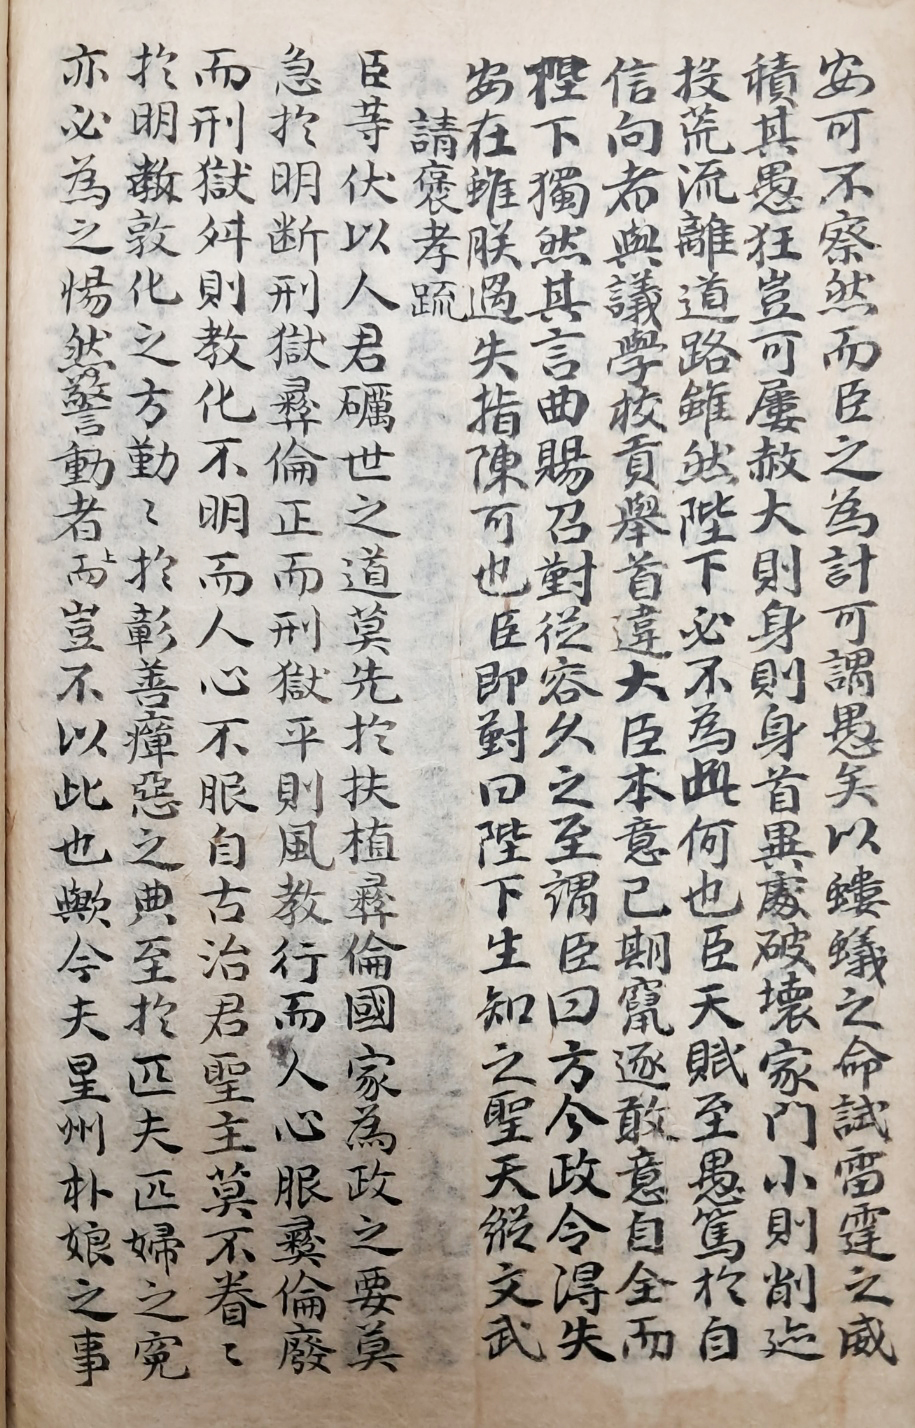 安可不察然而臣之為計可謂愚矣以螻蟻之命試雷霆之威
積其愚狂豈可屢赦大則身則身首異處破壞家門小則削迹
投荒流離道路雖然陛下必不為此何也臣天賦至愚篤於自
信向者與議學校貢舉首違大臣本意已期竄逐敢意自全而
陛下獨然其言曲賜召對從容久之至謂臣曰方今政令淂失
安在雖朕過失指陳可也臣即對曰陛下生知之聖天縱文武
請褒孝䟽
臣等伏以人君礪世之道莫先於扶植彛倫國家為政之要莫
急於明断刑獄彛倫正而刑獄平則風教行而人心服彛倫廢
而刑獄舛則教化不明而人心不服自古治君聖主莫不眷〻
於明教敦化之方勤〻於彰善癉惡之典至於匹夫匹婦之寃
亦必為之惕然警動者而豈不以此也歟今夫星州朴娘之事